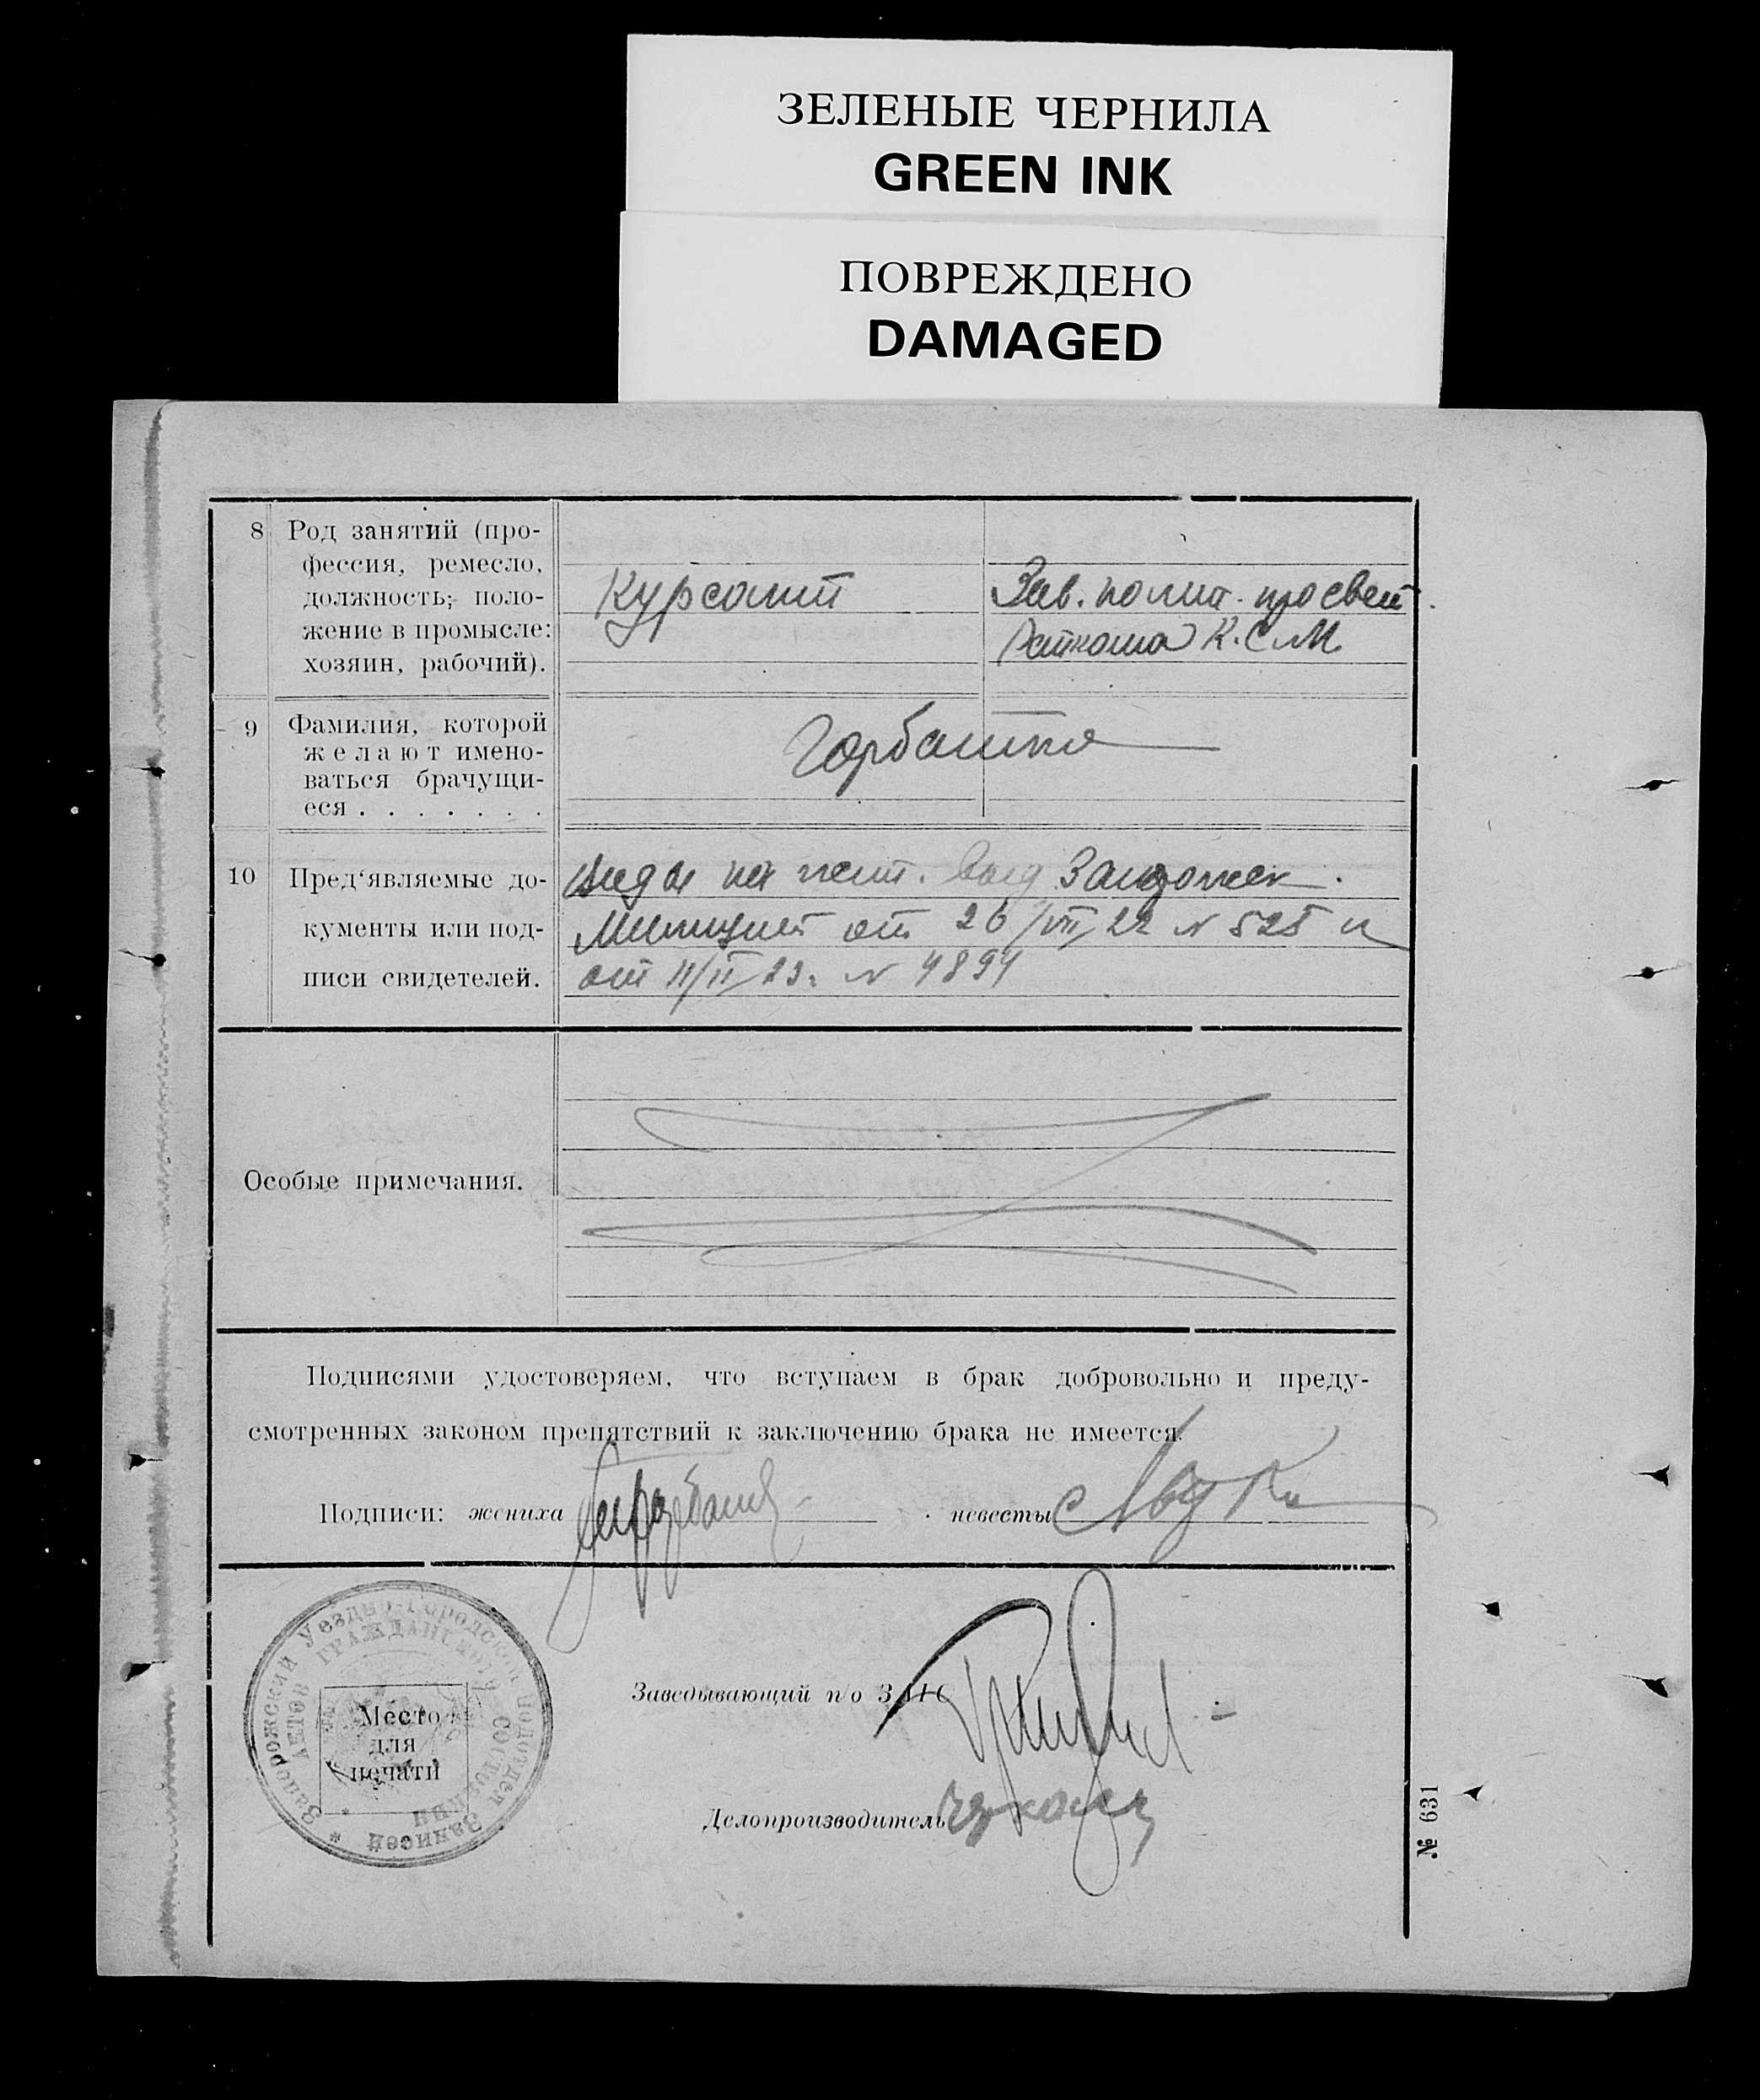 ЗЕЛЕНЫЕ ЧЕРНИЛА
GREEN INK
ПОВРЕЖДЕНО
DAMAGED
8 Род занятий (про-
фессия, ремесло,
должность; поло-
жение в промысле:
хозяин, рабочий).
Курсант
Зав. полит. просвет.
К.С.М.
9 Фамилия, которой
желают имено-
ваться брачущи-
еся . . . . . . .
10 Пред'являемые до-
кументы или под-
писи свидетелей.
Виды на жит.
Милицией от 26/VII 22 N 525 и
от 11/II 23. N 4894
Особые примечания.
Подписями удостоверяем, что вступаем в брак добровольно и преду-
смотренных законом препятствий к заключению брака не имеется.
Подписи: жениха
невесты
Запорожский Уездно-Городской подотдел Записей
Актов Гражданского состояния
Место
для
печати
Заведывающий п/о ЗАГС
Делопроизводитель
№ 631